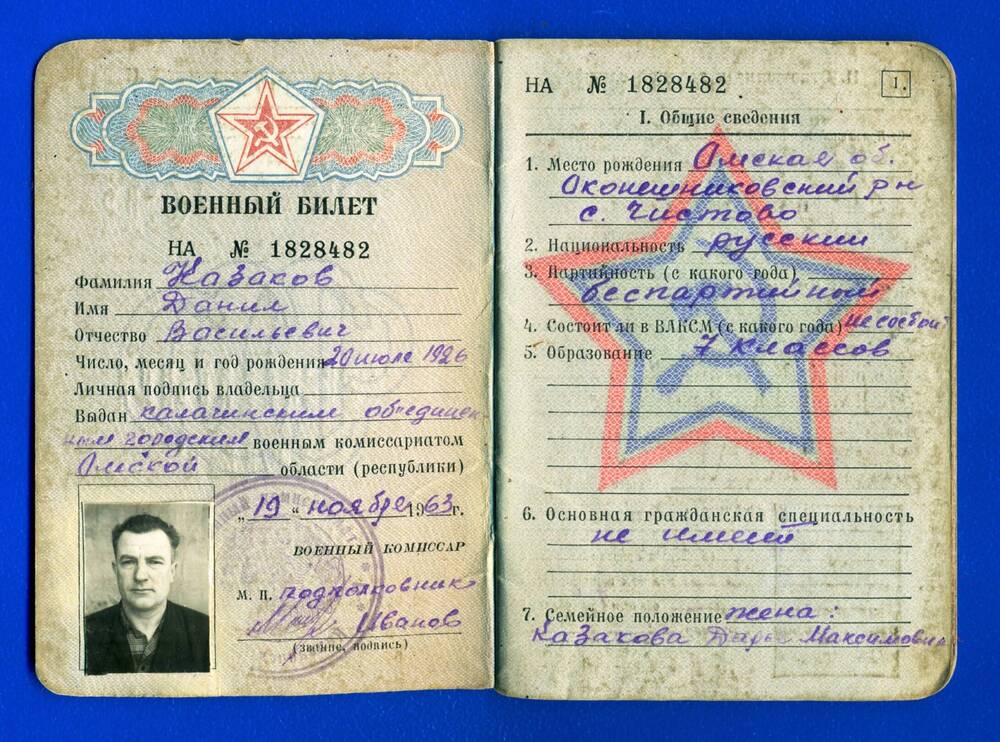 ВОЕННЫЙ БИЛЕТ
НА № 1828482
Фамилия Казаков
Имя Данил
Отчество Васильевич
Число, месяц и год рождения 20 июля 1926
Личная подпись владельца
Выдан калачинским объединен-
ным городским военным комиссариатом
Омской области (республики)
„19“ ноября 1963 г.
ВОЕННЫЙ КОМИССАР
М. П. подполковник
Иванов
(звание, подпись)
НА № 1828482 1.
I. Общие сведения
1. Место рождения Омская об.
Оконешниковский р-н
с. Чистово
2. Национальность русский
3. Партийность (с какого года)
беспартийный
4. Состоит ли в ВЛКСМ (с какого года) не состоит
5. Образование 7 классов
6. Основная гражданская специальность
не имеет
7. Семейное положение жена:
Казакова Дарья Максимовна